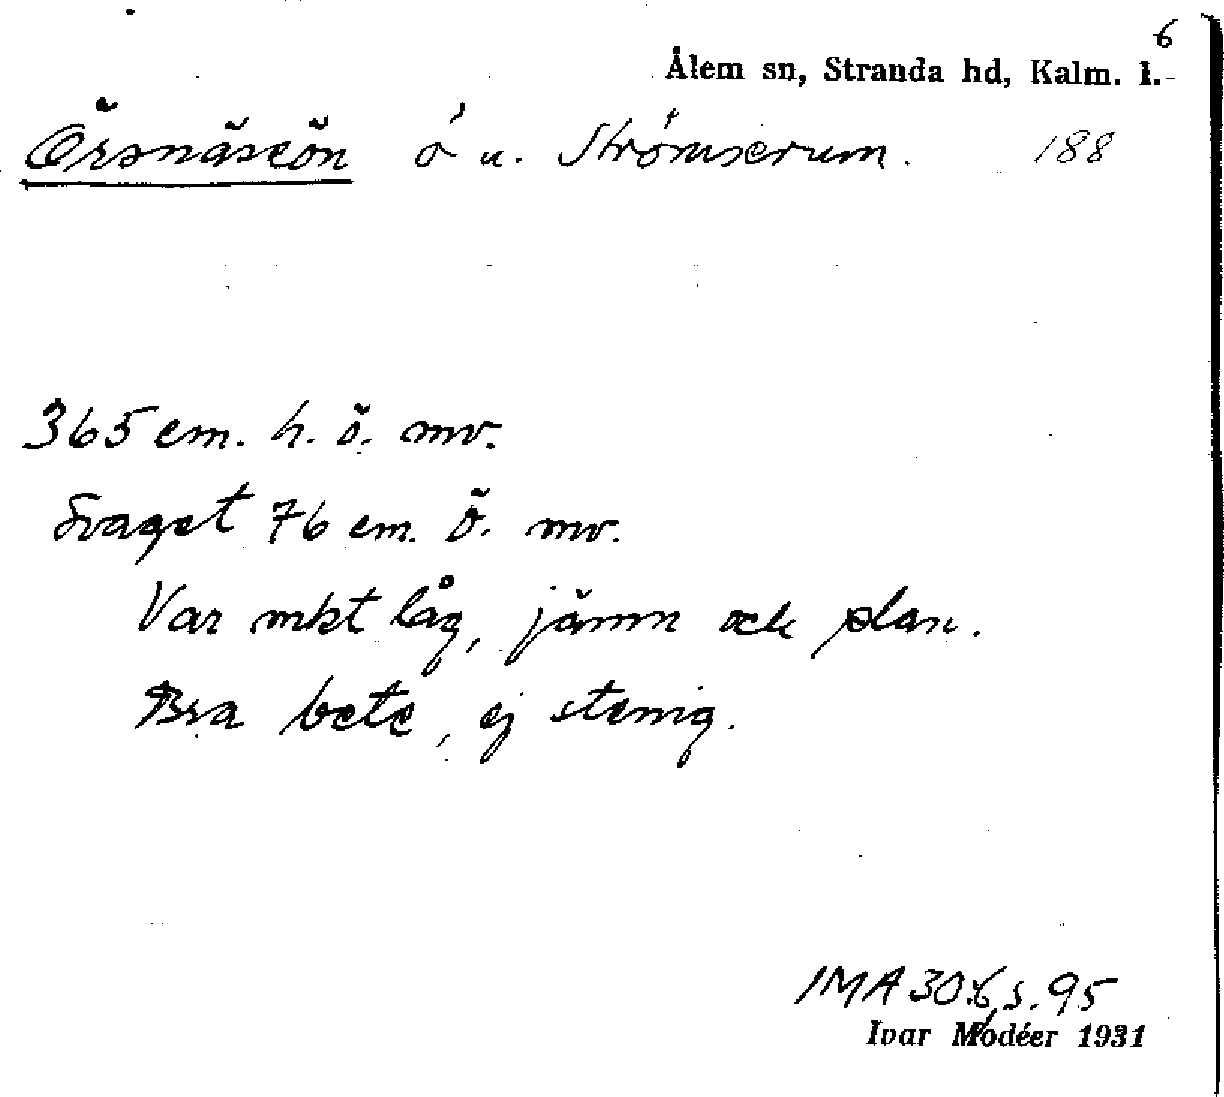 6
Ålem sn, Stranda hd, Kalm. l.
Örsnäseön ö u. Strömserum. 188
365 cm. h. ö. mv.
Svaget 76 cm. ö. mv.
Var mkt låg, jämn och plan.
Bra bete, ej stenig.
IMA 30:6, s. 95
Ivar Modéer 1931